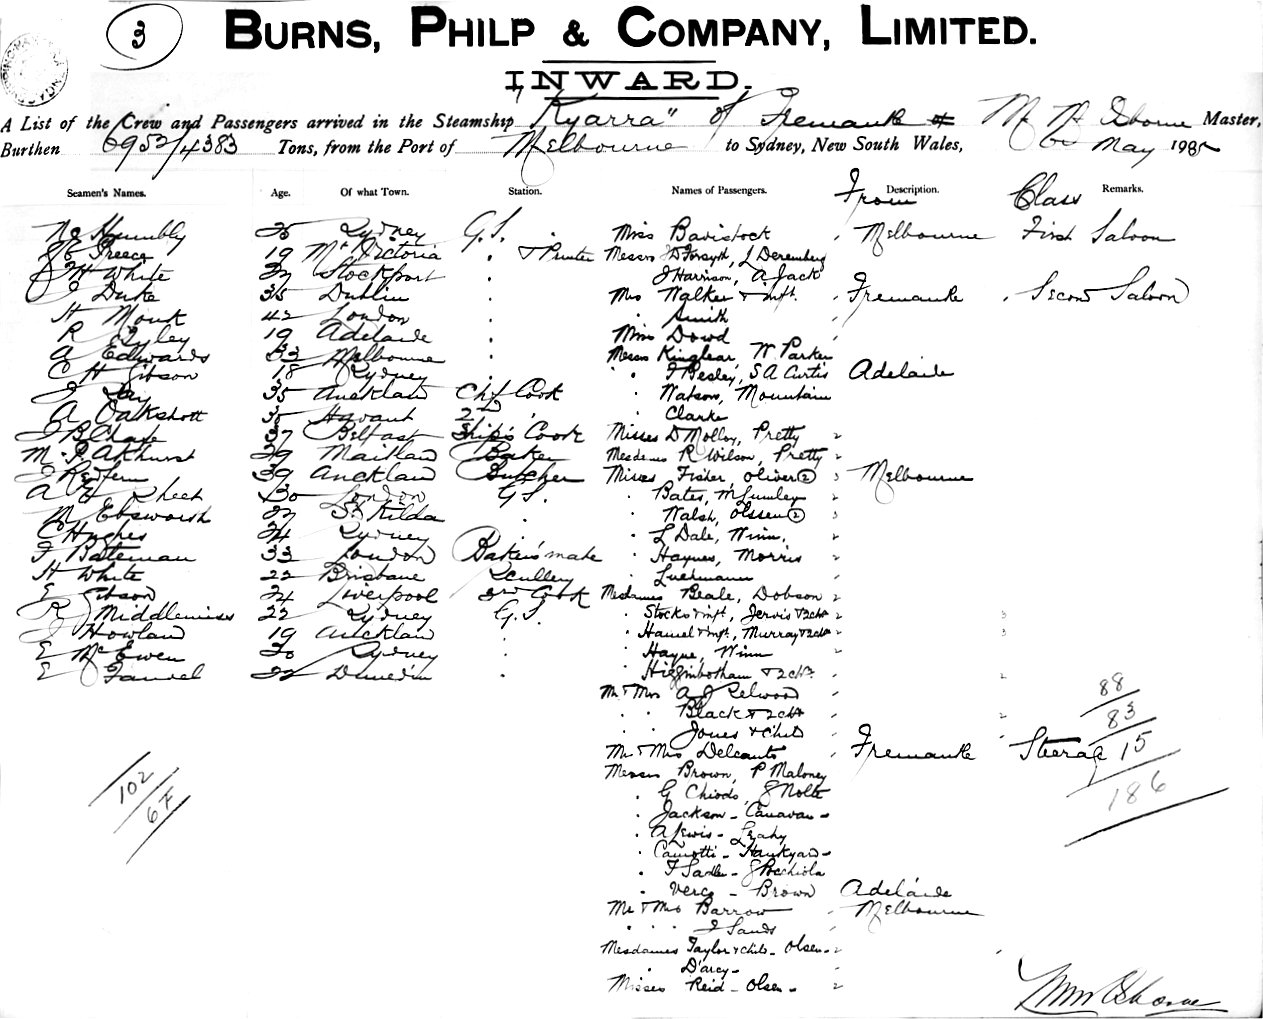 3
BURNS, PHILP & COMPANY, LIMITED.
INWARD.
A List of the Crew and Passengers arrived in the Steamship "Kyarra" of Fremantle Master,
Burthen 6952/4383 Tons, from the Port of Melbourne to Sydney, New South Wales, May 19
Seamen's Names. Age. Of what Town. Station. Names of Passengers. From Description. Class Remarks.
Humbly Sydney G.S. Miss Bavistock Melbourne First Saloon
Preece 19 Mt Victoria Printer Messrs D Forsyth, J
H White Stockport J Harrison, A Jack
J Duke 35 Dublin Mrs Walker & inft. Fremantle Second Saloon
H Monk 42 London Smith
R 19 Adelaide Miss Dowd
A Edwards 33 Melbourne Messrs Kinglear, W Parker
C H Gibson 18 Sydney J Besley, S A Curtis Adelaide
35 Auckland Chf Cook Watson, Mountain
A Oakshott 35 Havant 2nd Clarke
J B 37 Belfast Ship's Cook Misses D Molloy, Pretty
M. P. Akhurst 29 Maitland Baker Mesdames R Wilson, Pretty
J Redfern 39 Auckland Butcher Misses Fisher, Oliver 2 Melbourne
A E 30 London G.S. Bates, M Lumley
N Ebsworth 27 St Kilda Walsh, Olssen 2
C Hughes 24 Sydney L Dale, Winn,
F Bateman 33 London Baker's mate Haynes, Morris
H White 22 Brisbane Scullery Luehmann
E Gibson 24 Liverpool 3rd Cook Mesdames Beale, Dobson
R Middlemiss 22 Sydney G.S. Stocks & inft, Jervis & 2 ch
J Howland 19 Auckland Hamel & inft, Murray & 2 ch
E McEwen 30 Sydney Hayne, Winn
E 22 Dunedin Higginbotham & 2 ch
Mr & Mrs A J Relwood 88
Black & 2 ch 83
Jones & Child
Mr & Mrs Delcanto Fremantle Steerage 15
102 Messrs Brown, P Maloney
67 G Chiods, J Nolte 186
Jackson - Canavan
A Lewis - Leahy
Camotti - Hankyard
F Sadler - J Bechiola
Verco - Brown Adelaide
Mr & Mrs Barrow Melbourne
J Sands
Mesdames Taylor & Child - Olsen
D'arcy
Misses Reid - Olsen